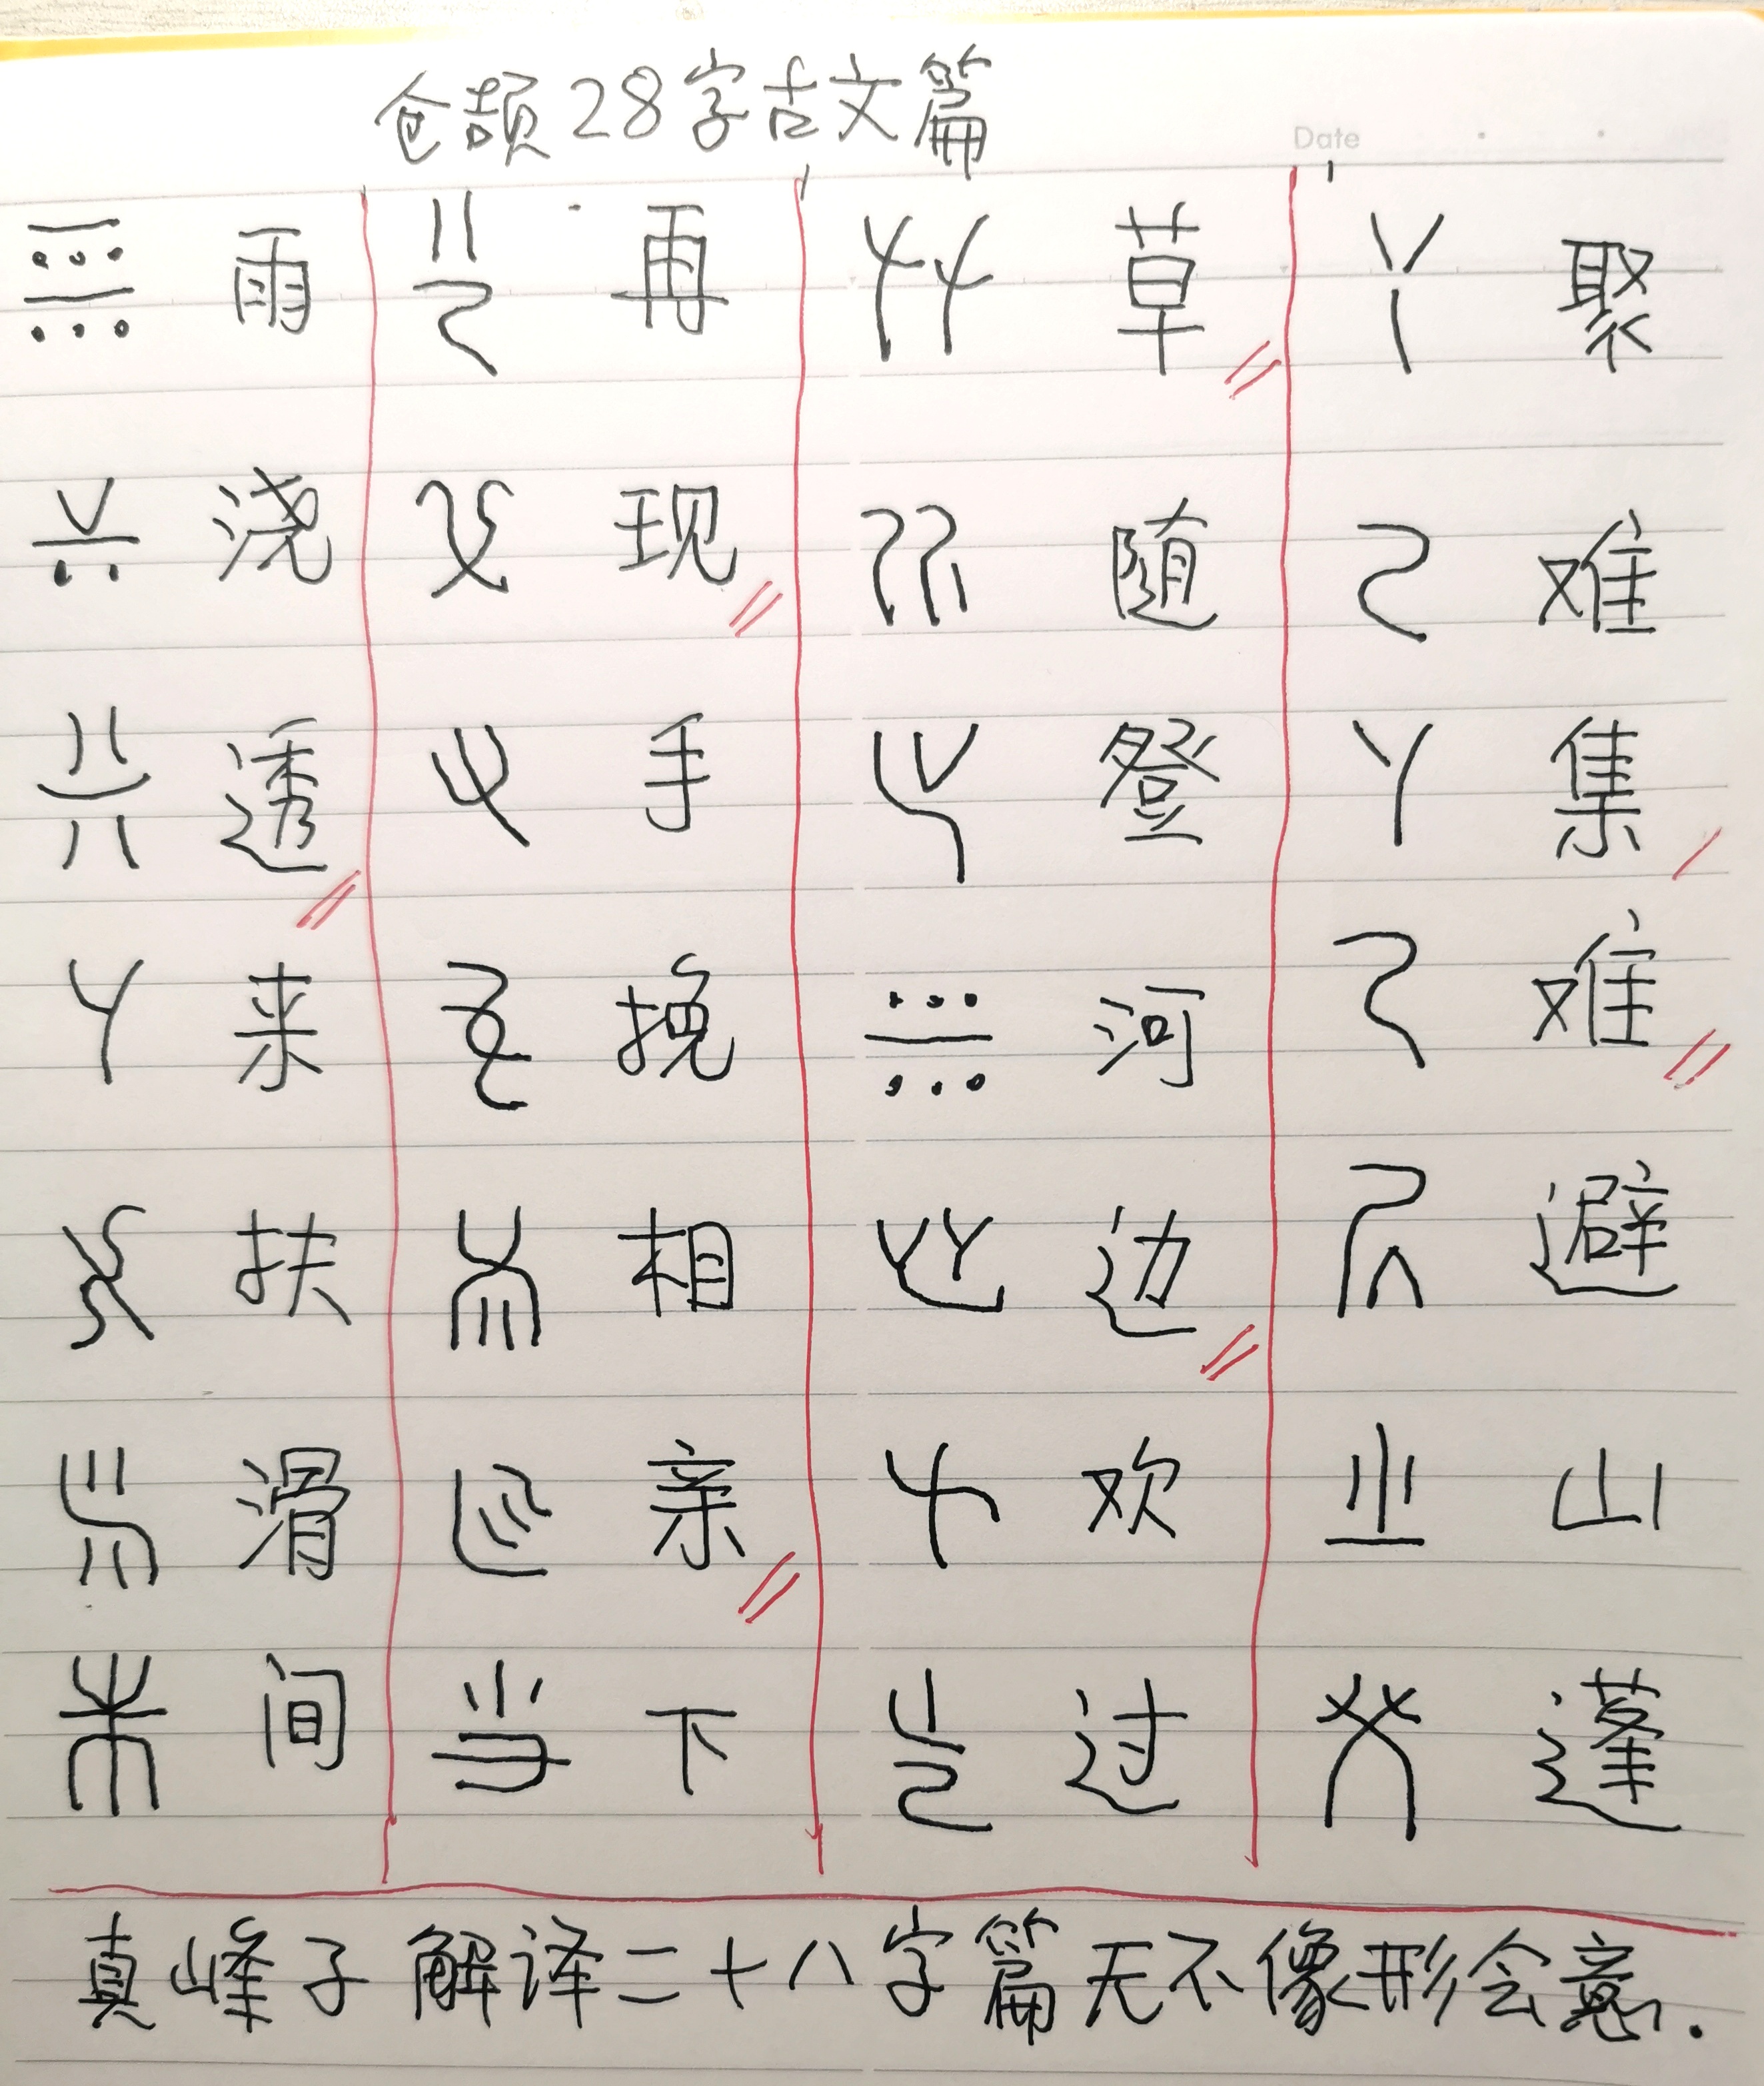 仓颉28字古文篇
Date
雨 再 草 聚
浇 现 随 难
透 手 登 集
来 挽 河 难
扶 相 边 避
滑 亲 欢 山
间 当下 过 蓬
真峰子解译二十八字篇无不像形会意.